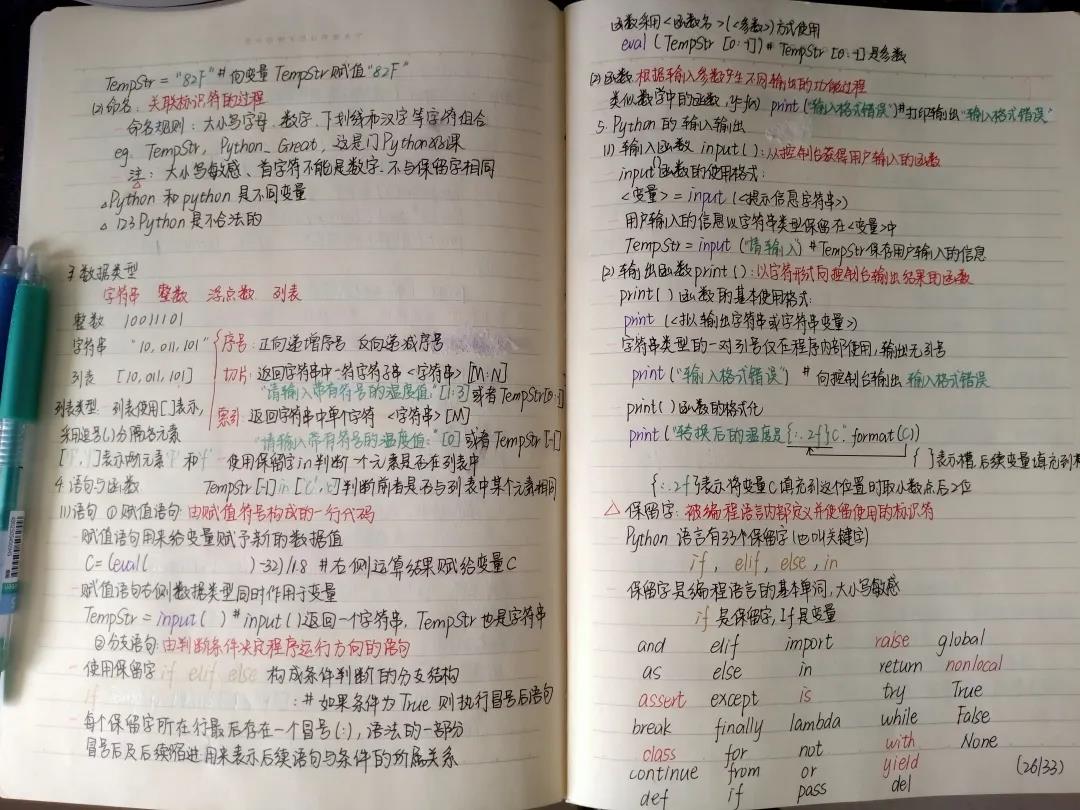 TempStr = "82F" # 向变量 TempStr 赋值 "82F"
(2) 命名: 关联标识符的过程
- 命名规则: 大小写字母、数字、下划线和汉字等字符组合
eg. TempStr, Python_Great, 这是门Python好课
- 注: 大小写敏感、首字符不能是数字、不与保留字相同
△ Python 和 python 是不同变量
△ 123Python 是不合法的
3. 数据类型
字符串 整数 浮点数 列表
整数 10011101
字符串 "10,011,101"
列表 [10,011,101]
列表类型: 列表使用[]表示,
采用逗号(,)分隔各元素
['F','f']表示两元素'F'和'f'
序号: 正向递增序号 反向递减序号
切片: 返回字符串中一段字符子串 <字符串>[M:N]
"请输入带有符号的温度值:"[1:3]或者TempStr[0:-1]
索引: 返回字符串中单个字符 <字符串>[M]
"请输入带有符号的温度值:"[0]或者TempStr[-1]
- 使用保留字in判断一个元素是否在列表中
TempStr[-1] in ['C','c']判断前者是否与列表中某个元素相同
4. 语句与函数
(1) 语句 ① 赋值语句: 由赋值符号构成的一行代码
- 赋值语句用来给变量赋予新的数据值
C=(eval( )-32)/1.8 # 右侧运算结果赋给变量C
- 赋值语句右侧数据类型同时作用于变量
TempStr=input( ) # input()返回一个字符串, TempStr也是字符串
②分支语句: 由判断条件决定程序运行方向的语句
- 使用保留字 if elif else 构成条件判断的分支结构
if : # 如果条件为True 则执行冒号后语句
- 每个保留字所在行最后存在一个冒号(:), 语法的一部分
冒号后及后续缩进用来表示后续语句与条件的所属关系
函数采用<函数名>(<参数>)方式使用
eval (TempStr [0:-1]) # TempStr [0:-1]是参数
(2) 函数: 根据输入参数产生不同输出的功能过程
类似数学中的函数, y=f(x) print ("输入格式错误")#打印输出"输入格式错误"
5. Python 的输入输出
(1) 输入函数 input(): 从控制台获得用户输入的函数
input()函数的使用格式:
<变量> = input (<提示信息字符串>)
- 用户输入的信息以字符串类型保留在<变量>中
TempStr = input ("请输入) # TempStr保存用户输入的信息
(2) 输出函数print(): 以字符形式向控制台输出结果的函数
print()函数的基本使用格式:
print (<拟输出字符串或字符串变量>)
- 字符串类型的一对引号仅在程序内部使用, 输出无引号
print("输入格式错误") # 向控制台输出 输入格式错误
- print()函数的格式化
print("转换后的温度是{:.2f}C".format(C))
{ }表示槽, 后续变量填充到槽
{:.2f}表示将变量C填充到这个位置时取小数点后2位
△ 保留字: 被编程语言内部定义并保留使用的标识符
- Python 语言有33个保留字(也叫关键字)
if, elif, else, in
- 保留字是编程语言的基本单词, 大小写敏感
if 是保留字, If 是变量
and elif import raise global
as else in return nonlocal
assert except is try True
break finally lambda while False
class for not with None
continue from or yield (26|33)
def if pass del